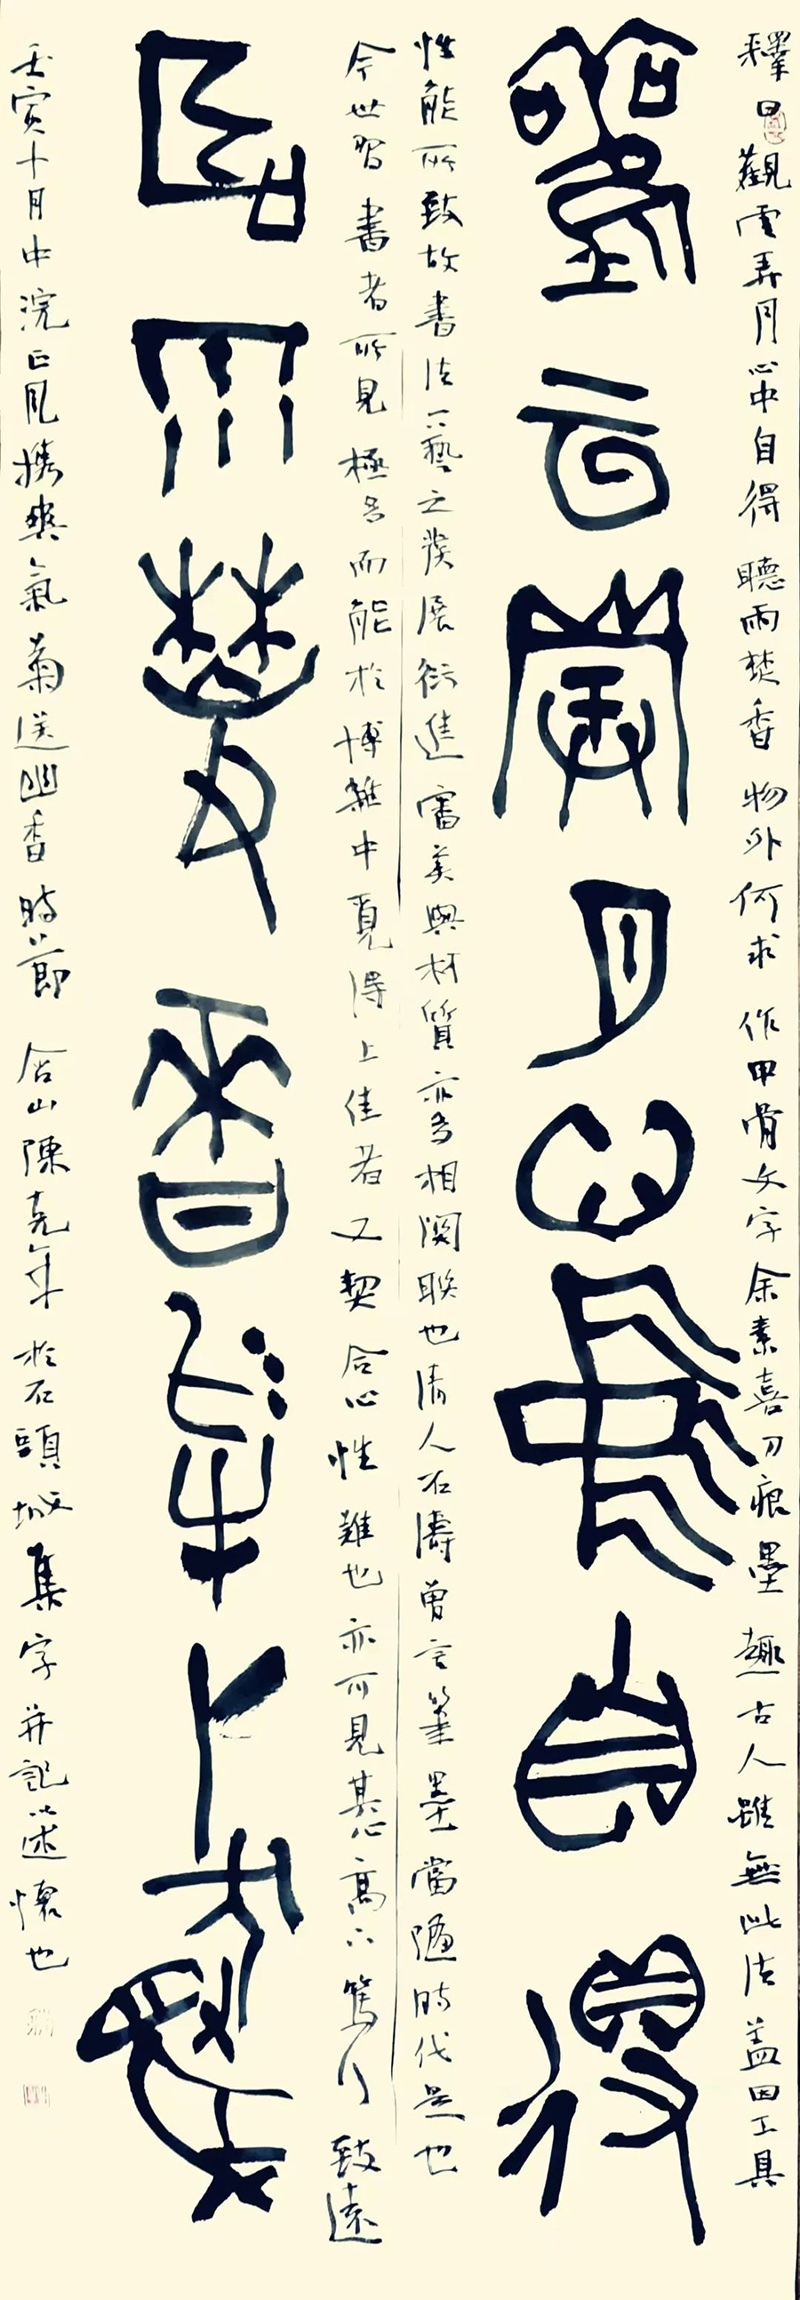 釋曰觀雲弄月心中自得聽雨焚香物外何求作甲骨文字余素喜刀痕墨趣古人雖無此法蓋因工具
觀雲弄月心中自得
性能所致故書法藝之發展衍進審美與材質亦多相關聯也清人石濤曾言筆墨當隨時代是也
今世習書者所見極多而能於博雜中覓得上佳者又契合心性難也亦可見其心高下篤行致遠
聽雨焚香物外何求
壬寅十月中浣正風携爽氣菊送幽香時節 含山陳克年於石頭城集字并記以述懷也